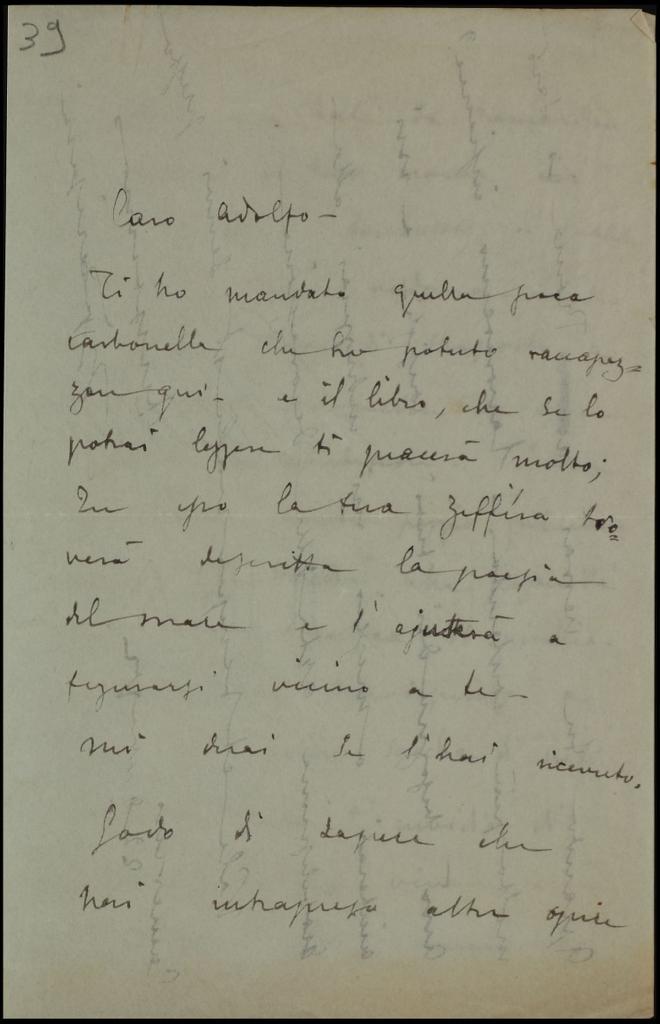 39
Caro Adolfo -
Ti ho mandato quella poca
carbonella che ho potuto raccapez=
zare qui - e il libro, che se lo
potrai leggere ti piacerà molto;
In esso la tua Zeffira tro=
verà descritta la poesia
del mare e l'ajuterà a
figurarsi vicino a te -
Mi dirai se l'hai ricevuto.
Godo di sapere che
hai intrapreso altre opere